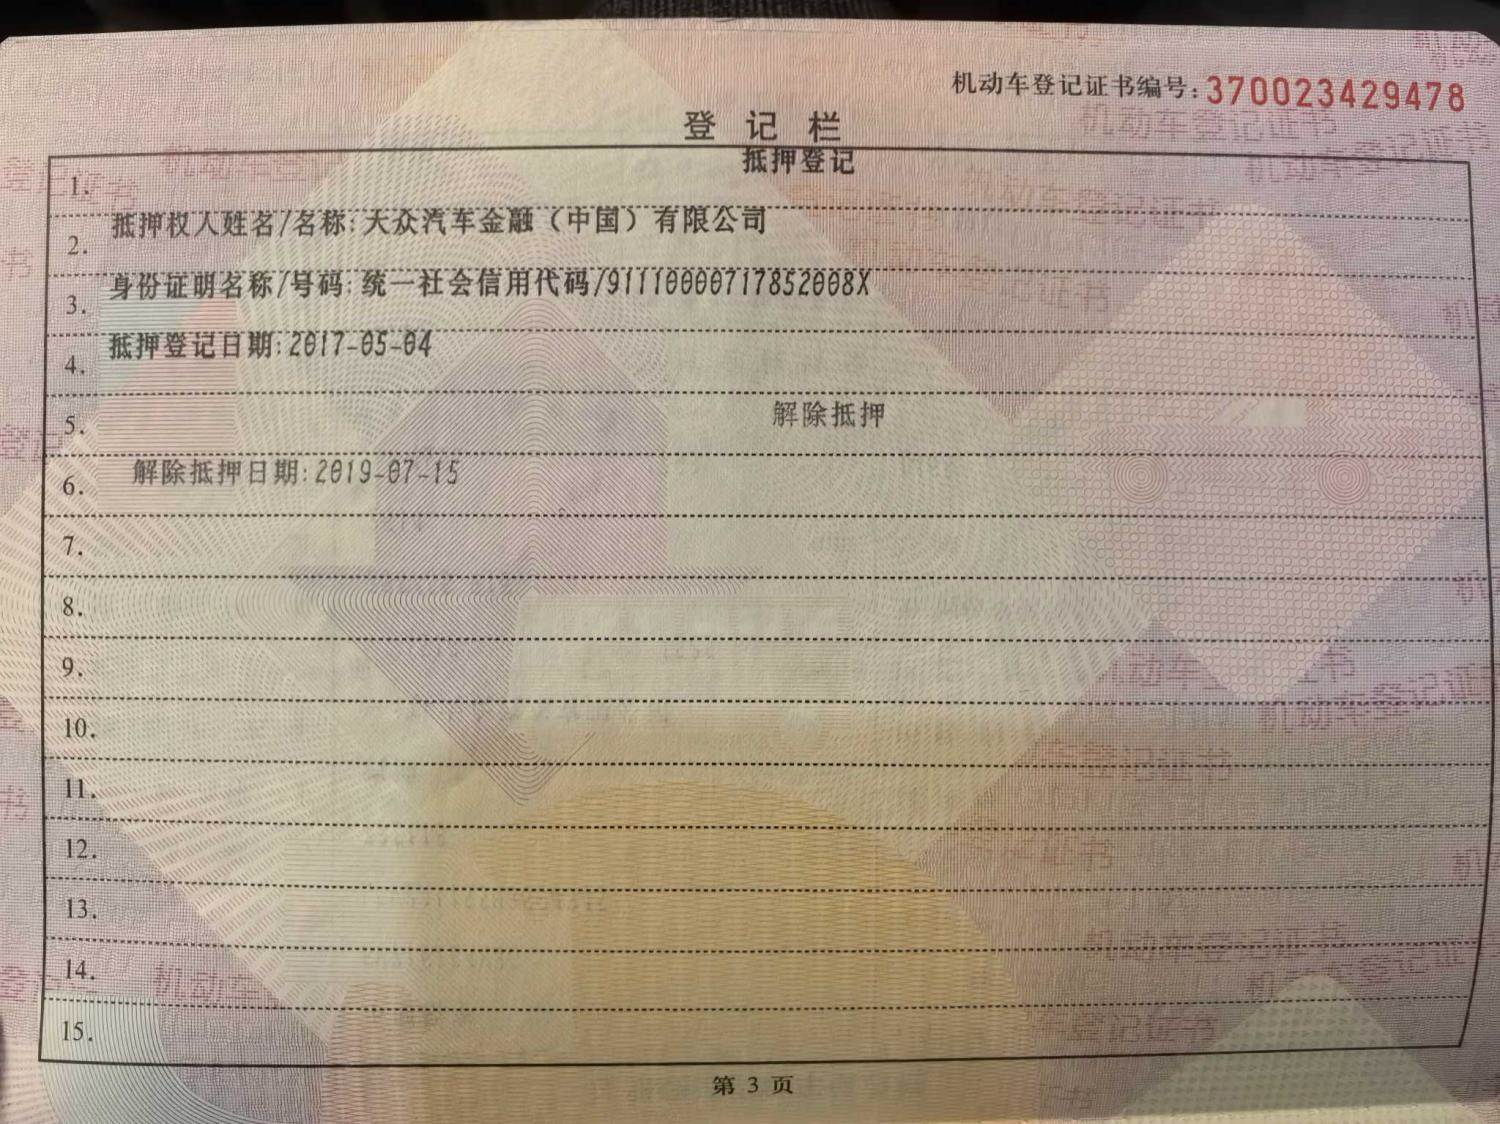 机动车登记证书编号:370023429478
登记栏
1. 抵押登记
2. 抵押权人姓名/名称:大众汽车金融（中国）有限公司
3. 身份证明名称/号码:统一社会信用代码/91110000717852008X
4. 抵押登记日期:2017-05-04
5. 解除抵押
6. 解除抵押日期:2019-07-15
7.
8.
9.
10.
11.
12.
13.
14.
15.
第 3 页